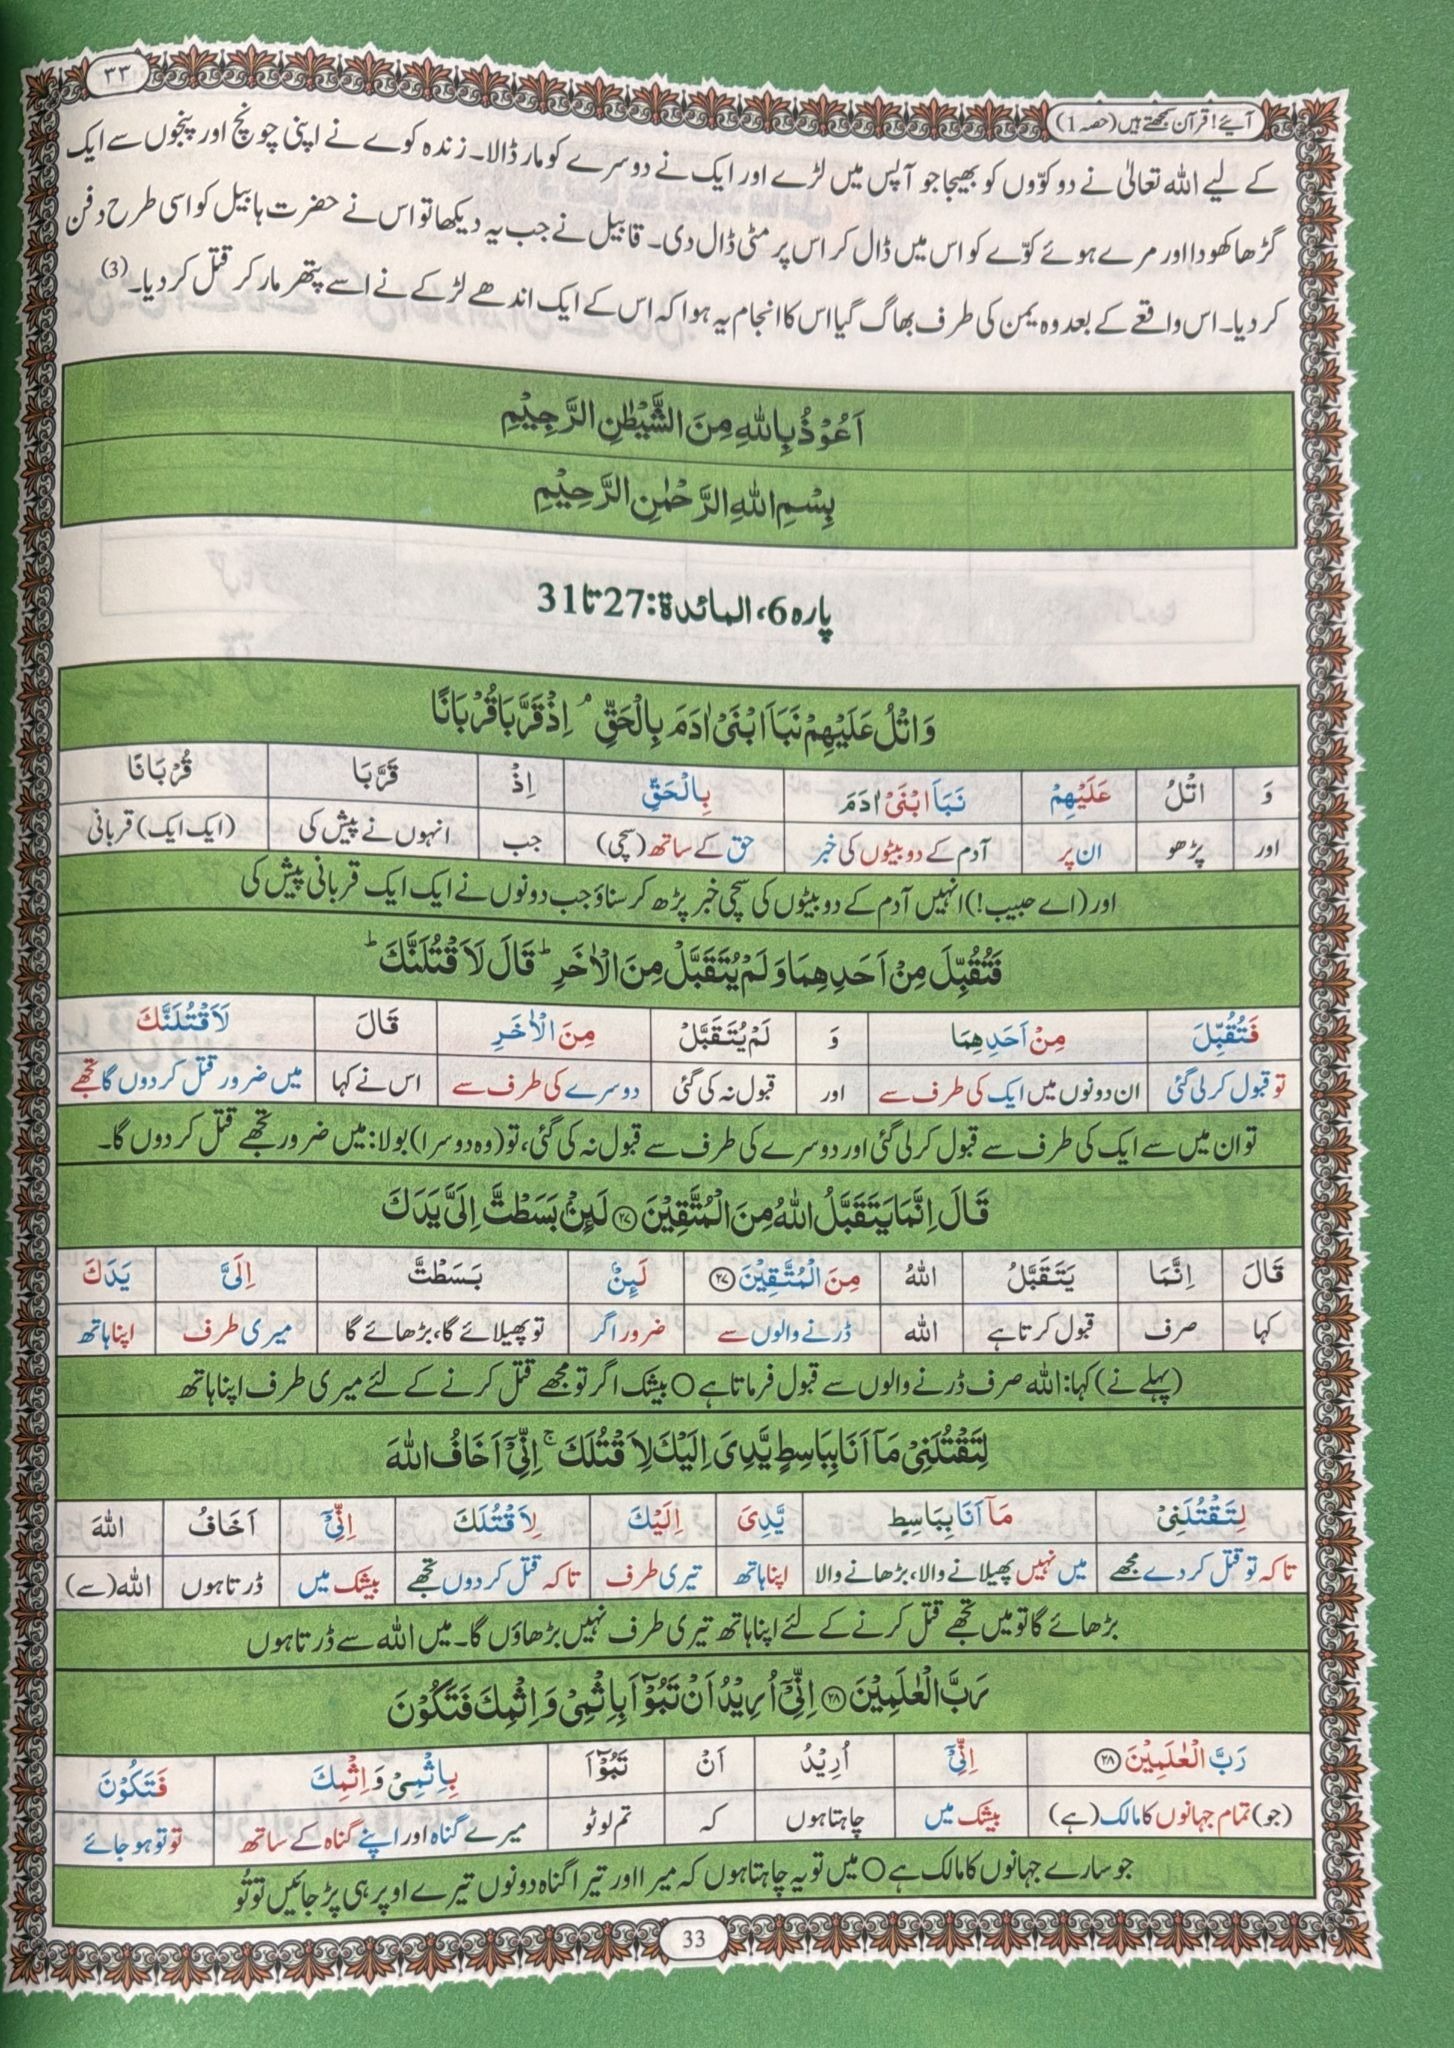 آیئے! قرآن سمجھتے ہیں (حصہ 1)
۳۳
کے لیے اللہ تعالیٰ نے دو کوّوں کو بھیجا جو آپس میں لڑے اور ایک نے دوسرے کو مار ڈالا۔ زندہ کوے نے اپنی چونچ اور پنجوں سے ایک
گڑھا کھودا اور مرے ہوئے کوّے کو اس میں ڈال کر اس پر مٹی ڈال دی۔ قابیل نے جب یہ دیکھا تو اس نے حضرت ہابیل کو اسی طرح دفن
کر دیا۔ اس واقعے کے بعد وہ یمن کی طرف بھاگ گیا اس کا انجام یہ ہوا کہ اس کے ایک اندھے لڑکے نے اسے پتھر مار کر قتل کر دیا۔(3)
اَعُوْذُ بِاللّٰهِ مِنَ الشَّیْطٰنِ الرَّجِیْمِ
بِسْمِ اللّٰهِ الرَّحْمٰنِ الرَّحِیْمِ
پارہ 6، المائدۃ: 27 تا 31
وَ اتْلُ عَلَیْهِمْ نَبَاَ ابْنَیْ اٰدَمَ بِالْحَقِّ ۘ اِذْ قَرَّبَا قُرْبَانًا
وَ اتْلُ عَلَیْهِمْ نَبَاَ ابْنَیْ اٰدَمَ بِالْحَقِّ اِذْ قَرَّبَا قُرْبَانًا
اور پڑھو ان پر آدم کے دو بیٹوں کی خبر حق کے ساتھ (سچی) جب انہوں نے پیش کی (ایک ایک) قربانی
اور (اے حبیب!) انہیں آدم کے دو بیٹوں کی سچی خبر پڑھ کر سناؤ جب دونوں نے ایک ایک قربانی پیش کی
فَتُقُبِّلَ مِنْ اَحَدِهِمَا وَ لَمْ یُتَقَبَّلْ مِنَ الْاٰخَرِ ؕ قَالَ لَاَقْتُلَنَّكَ ؕ
فَتُقُبِّلَ مِنْ اَحَدِهِمَا وَ لَمْ یُتَقَبَّلْ مِنَ الْاٰخَرِ قَالَ لَاَقْتُلَنَّكَ
تو قبول کر لی گئی ان دونوں میں ایک کی طرف سے اور قبول نہ کی گئی دوسرے کی طرف سے اس نے کہا میں ضرور قتل کر دوں گا تجھے
تو ان میں سے ایک کی طرف سے قبول کر لی گئی اور دوسرے کی طرف سے قبول نہ کی گئی، تو (وہ دوسرا) بولا: میں ضرور تجھے قتل کر دوں گا۔
قَالَ اِنَّمَا یَتَقَبَّلُ اللّٰهُ مِنَ الْمُتَّقِیْنَ ۲۷ لَىِٕنْۢ بَسَطْتَّ اِلَیَّ یَدَكَ
قَالَ اِنَّمَا یَتَقَبَّلُ اللّٰهُ مِنَ الْمُتَّقِیْنَ ۲۷ لَىِٕنْۢ بَسَطْتَّ اِلَیَّ یَدَكَ
کہا صرف قبول کرتا ہے اللہ ڈرنے والوں سے ضرور اگر تو پھیلائے گا، بڑھائے گا میری طرف اپنا ہاتھ
(پہلے نے) کہا: اللہ صرف ڈرنے والوں سے قبول فرماتا ہے ○ بیشک اگر تو مجھے قتل کرنے کے لئے میری طرف اپنا ہاتھ
لِتَقْتُلَنِیْ مَاۤ اَنَا بِبَاسِطٍ یَّدِیَ اِلَیْكَ لِاَقْتُلَكَ ۚ اِنِّیْۤ اَخَافُ اللّٰهَ
لِتَقْتُلَنِیْ مَاۤ اَنَا بِبَاسِطٍ یَّدِیَ اِلَیْكَ لِاَقْتُلَكَ اِنِّیْۤ اَخَافُ اللّٰهَ
تاکہ تو قتل کر دے مجھے میں نہیں پھیلانے والا، بڑھانے والا اپنا ہاتھ تیری طرف تاکہ قتل کر دوں تجھے بیشک میں ڈرتا ہوں اللہ (سے)
بڑھائے گا تو میں تجھے قتل کرنے کے لئے اپنا ہاتھ تیری طرف نہیں بڑھاؤں گا۔ میں اللہ سے ڈرتا ہوں
رَبَّ الْعٰلَمِیْنَ ۲۸ اِنِّیْۤ اُرِیْدُ اَنْ تَبُوْٓاَ بِاِثْمِیْ وَ اِثْمِكَ فَتَكُوْنَ
رَبَّ الْعٰلَمِیْنَ ۲۸ اِنِّیْۤ اُرِیْدُ اَنْ تَبُوْٓاَ بِاِثْمِیْ وَ اِثْمِكَ فَتَكُوْنَ
(جو) تمام جہانوں کا مالک (ہے) بیشک میں چاہتا ہوں کہ تم لوٹو میرے گناہ اور اپنے گناہ کے ساتھ تو تو ہو جائے
جو سارے جہانوں کا مالک ہے ○ میں تو یہ چاہتا ہوں کہ میرا اور تیرا گناہ دونوں تیرے اوپر ہی پڑ جائیں تو تُو
33